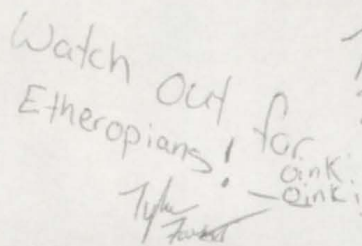 Watch out for
Etheropians!
oink!
oink!
Tyler